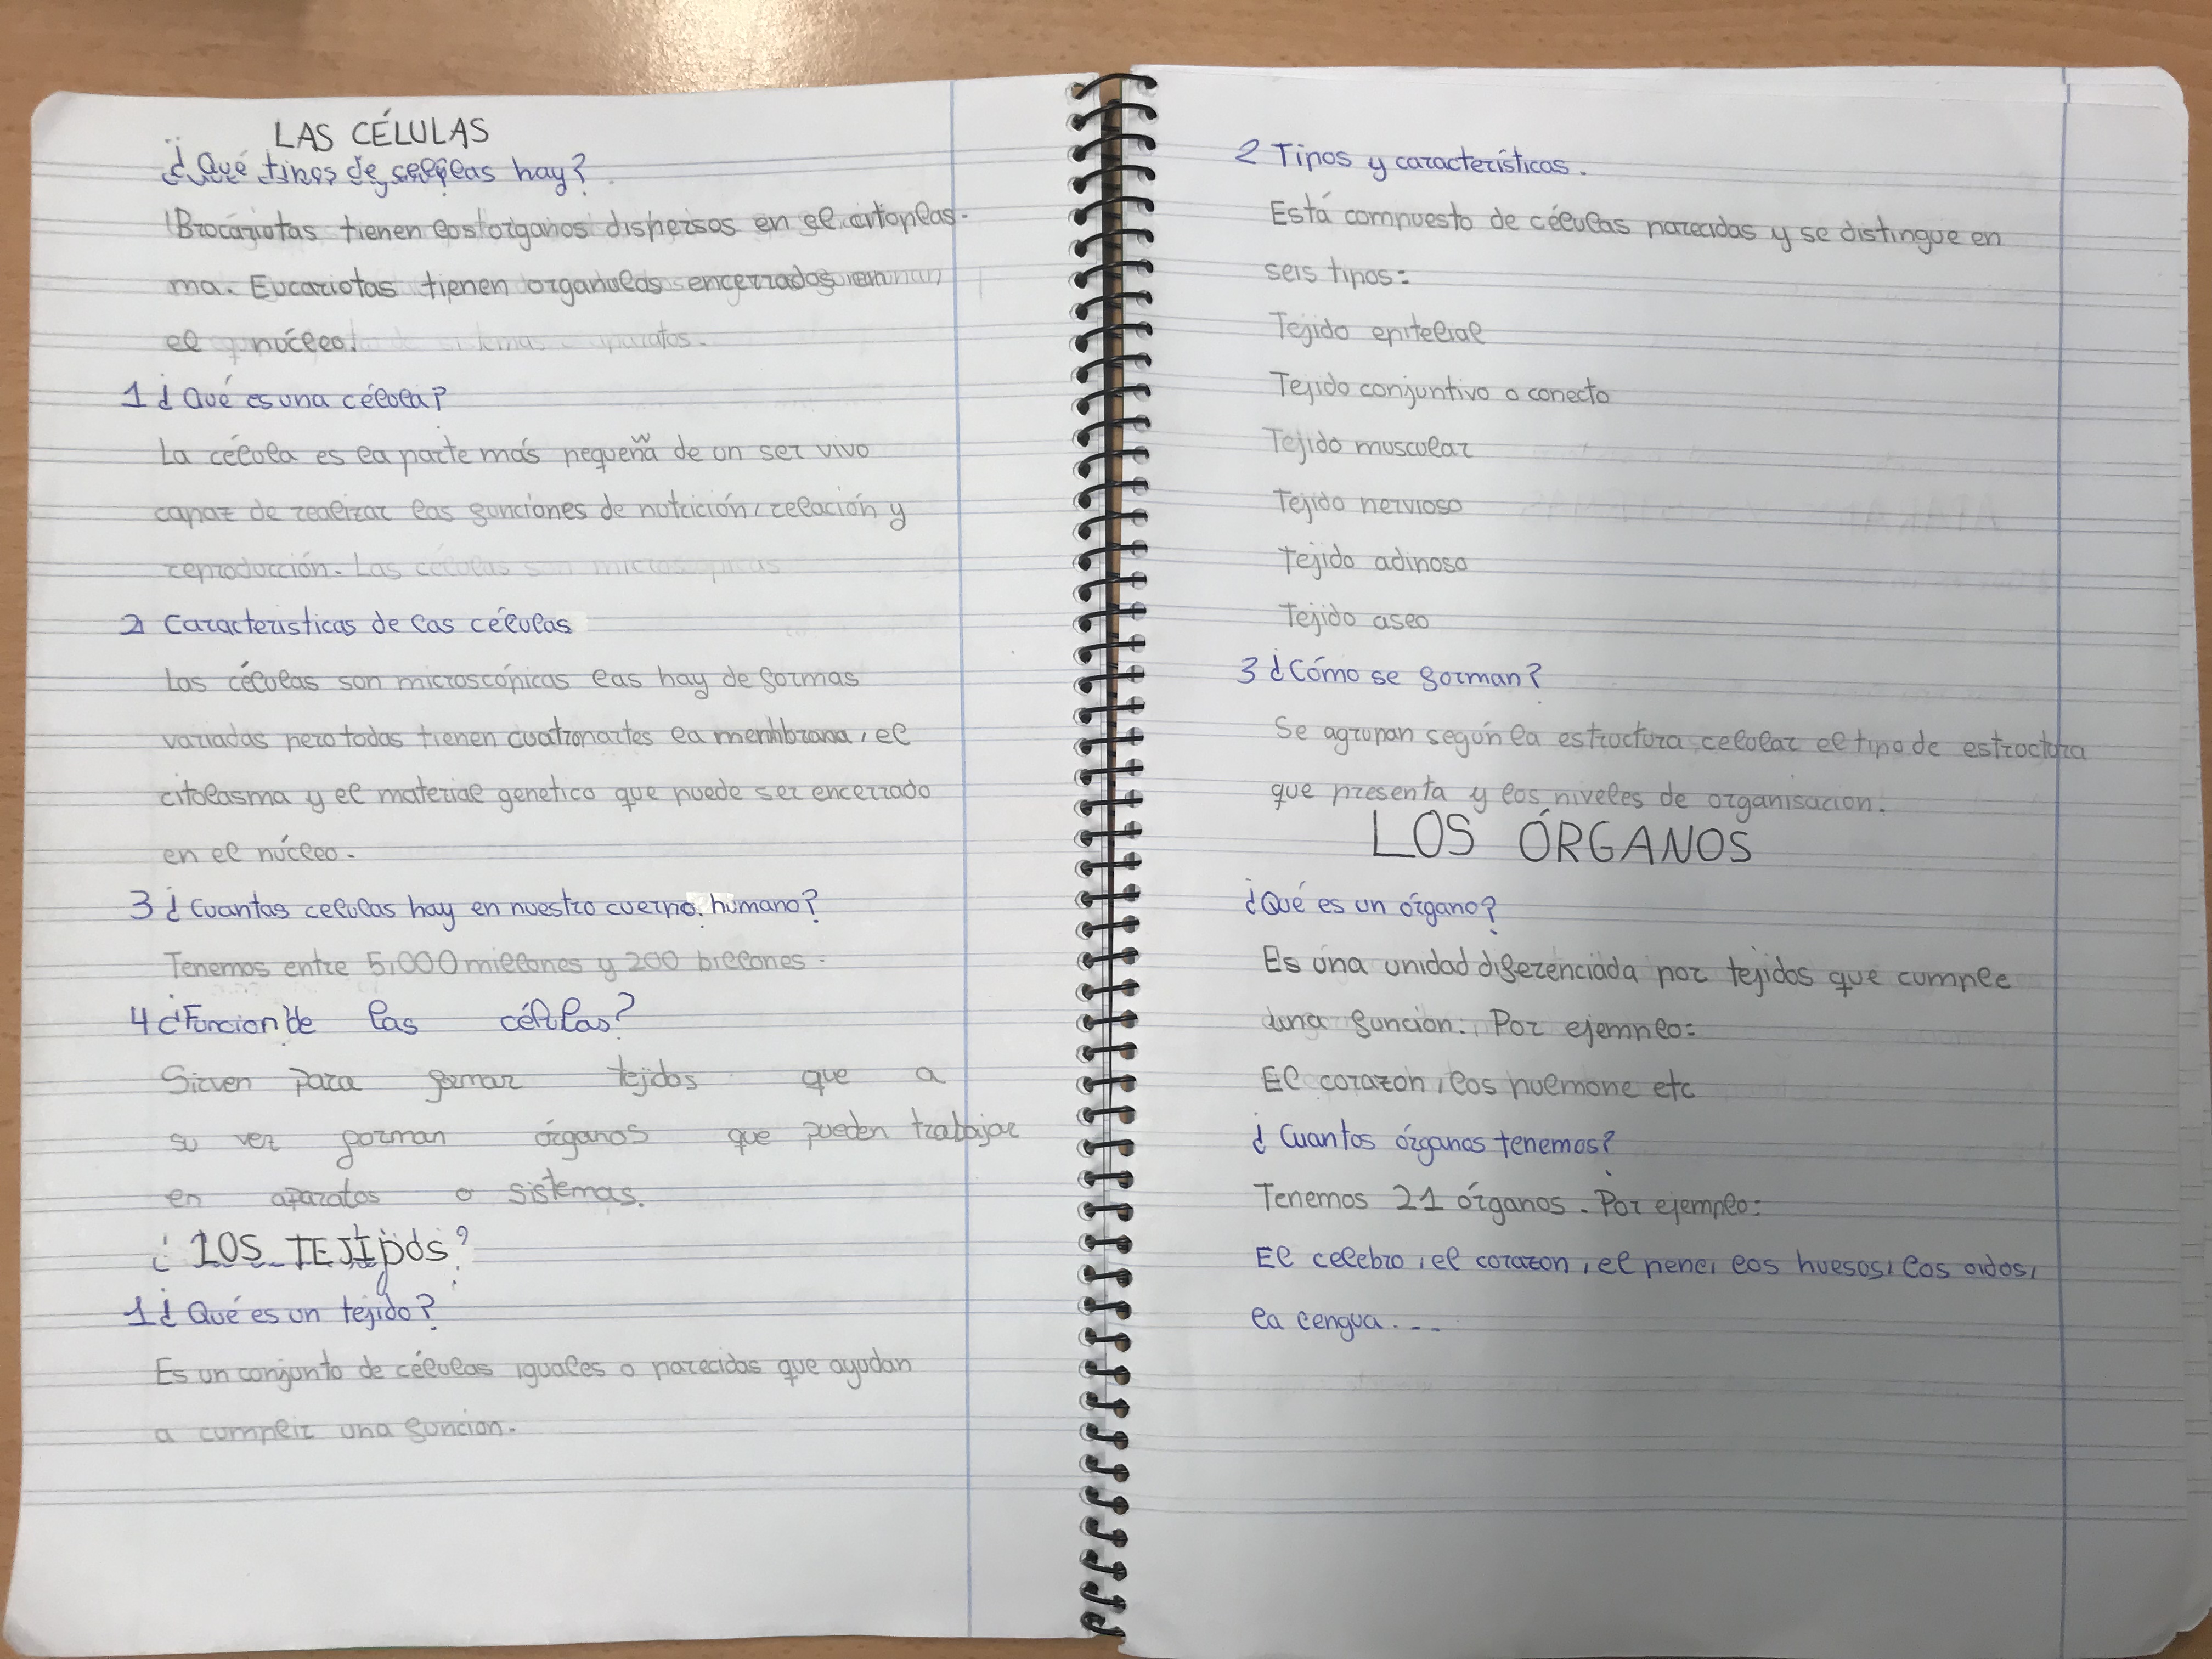 LAS CÉLULAS
¿Qué tipos de celulas hay?
Procariotas tienen los organos dispersos en el citoplas-
ma. Eucariotas tienen organulos encerrados en
el núcleo.
1 ¿Qué es una célula?
La célula es la parte más pequeña de un ser vivo
capaz de realizar las funciones de nutrición, relación y
reproducción. Las células son microscopicas
2 Caracteristicas de las células
Las células son microscópicas las hay de formas
variadas pero todas tienen cuatro partes la menhbrana, el
citolasma y el material genetico que puede ser encerrado
en el núcleo.
3 ¿Cuantas celulas hay en nuestro cuerpo humano?
Tenemos entre 5,000 millones y 200 billones.
4 ¿Funcion de las células?
Sirven para formar tejidos que a
su vez forman órganos que pueden trabajar
en aparatos o sistemas.
¿LOS TEJIDOS?
1 ¿Qué es un tejido?
Es un conjunto de células iguales o parecidas que ayudan
a cumplir una funcion.
2 Tipos y características.
Está compuesto de células parecidas y se distingue en
seis tipos:
Tejido epitelial
Tejido conjuntivo o conecto
Tejido muscular
Tejido nervioso
Tejido adiposo
Tejido aseo
3 ¿Cómo se forman?
Se agrupan según la estructura celular el tipo de estructura
que presenta y los niveles de organisacion.
LOS ÓRGANOS
¿Qué es un órgano?
Es una unidad diferenciada por tejidos que cumple
una funcion: Por ejemplo:
El corazon, los pulmone etc
¿Cuantos órganos tenemos?
Tenemos 21 órganos. Por ejemplo:
El celebro, el corazon, el pene, los huesos, los oidos,
la lengua....